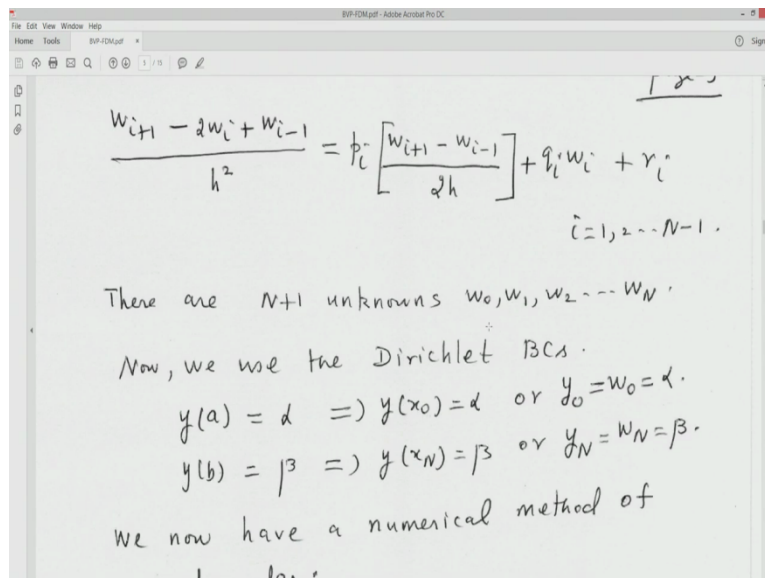 BVP-FDM.pdf - Adobe Acrobat Pro DC
File Edit View Window Help
Home Tools BVP-FDM.pdf × Sign
1 / 15
(w_{i+1} - 2w_i + w_{i-1}) / h² = p_i [(w_{i+1} - w_{i-1}) / 2h] + q_i w_i + r_i
i = 1, 2 -- N-1.
There are N+1 unknowns w₀, w₁, w₂ --- w_N.
Now, we use the Dirichlet BCs.
y(a) = α => y(x₀) = α or y₀ = w₀ = α.
y(b) = β => y(x_N) = β or y_N = w_N = β.
We now have a numerical method of